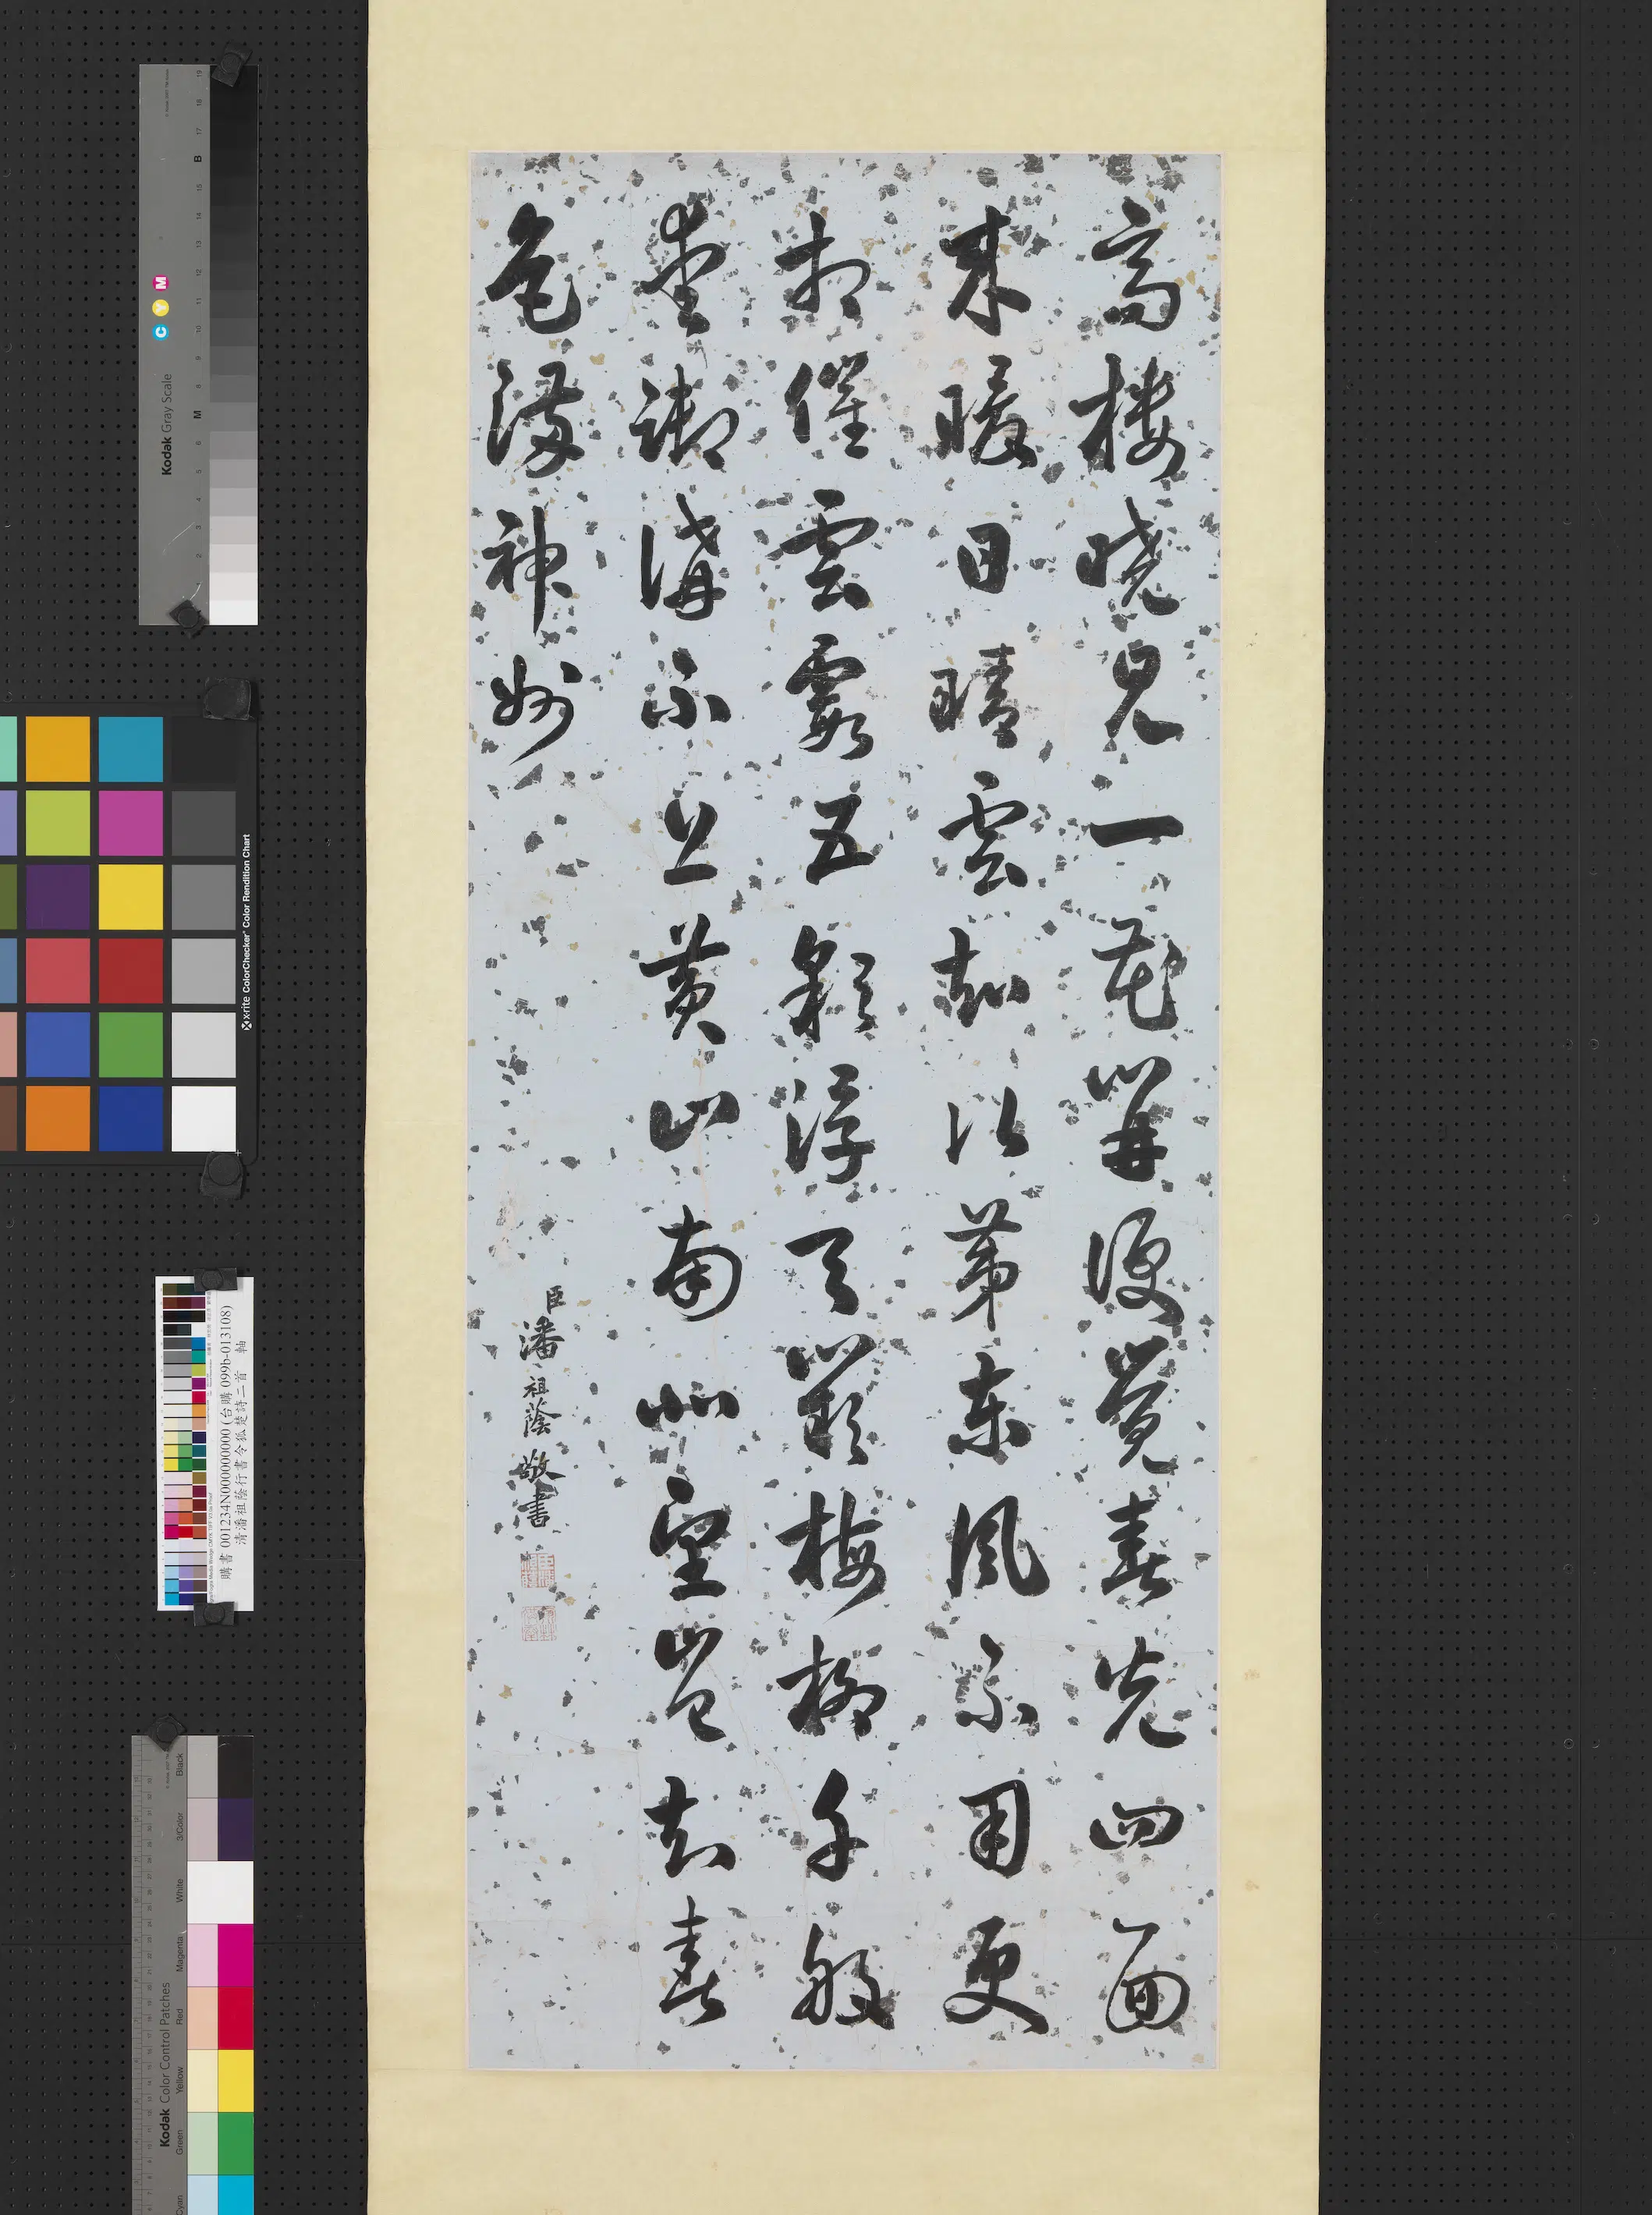 高樓曉見一花開便覺春光四面
來暖日晴雲知次第東風不用更
相催雲霞五彩浮天闕梅柳千般
夾御溝不上黃山南北望豈知春
色滿神州
臣潘祖蔭敬書
Kodak Gray Scale
C Y M
x-rite ColorChecker Color Rendition Chart
購書 001234N000000000 (台購 099b-013108)
清潘祖蔭行書令狐楚詩二首 軸
Kodak Color Control Patches
Black
3/Color
White
Magenta
Red
Yellow
Green
Cyan